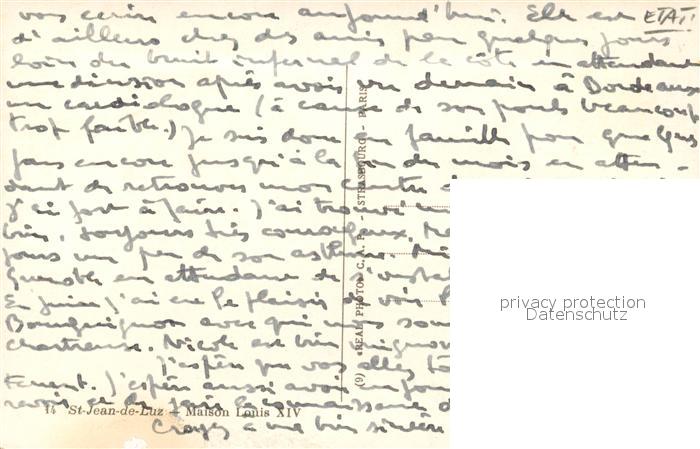 vous écrire encore aujourd'hui. Elle est ETAT
d'ailleurs chez des amis pour quelques jours
loin du bruit infernal de la côte en attendant
une décision après avoir vu demain à Bordeaux
un cardiologue (à cause de son pouls beaucoup
trop faible.) Je suis donc en famille pour quelques
jours encore jusqu'à la fin du mois en atten-
dant de retrouver mon
j'ai fort à faire. J'ai trouvé
bien, toujours très courageux,
jours un peu de son asthme.
Grenoble en attendant de
En juin j'ai eu le plaisir de voir
Bourguignon avec qui nous
chartreuse. Nicole est bien
J'espère que vous allez
J'espère aussi avoir un jour
faire la connaissance
Croyez à ma bien sincère
14 St-Jean-de-Luz — Maison Louis XIV
(9) «REAL PHOTO» C. A. P. - STRASBOURG - PARIS
privacy protection
Datenschutz